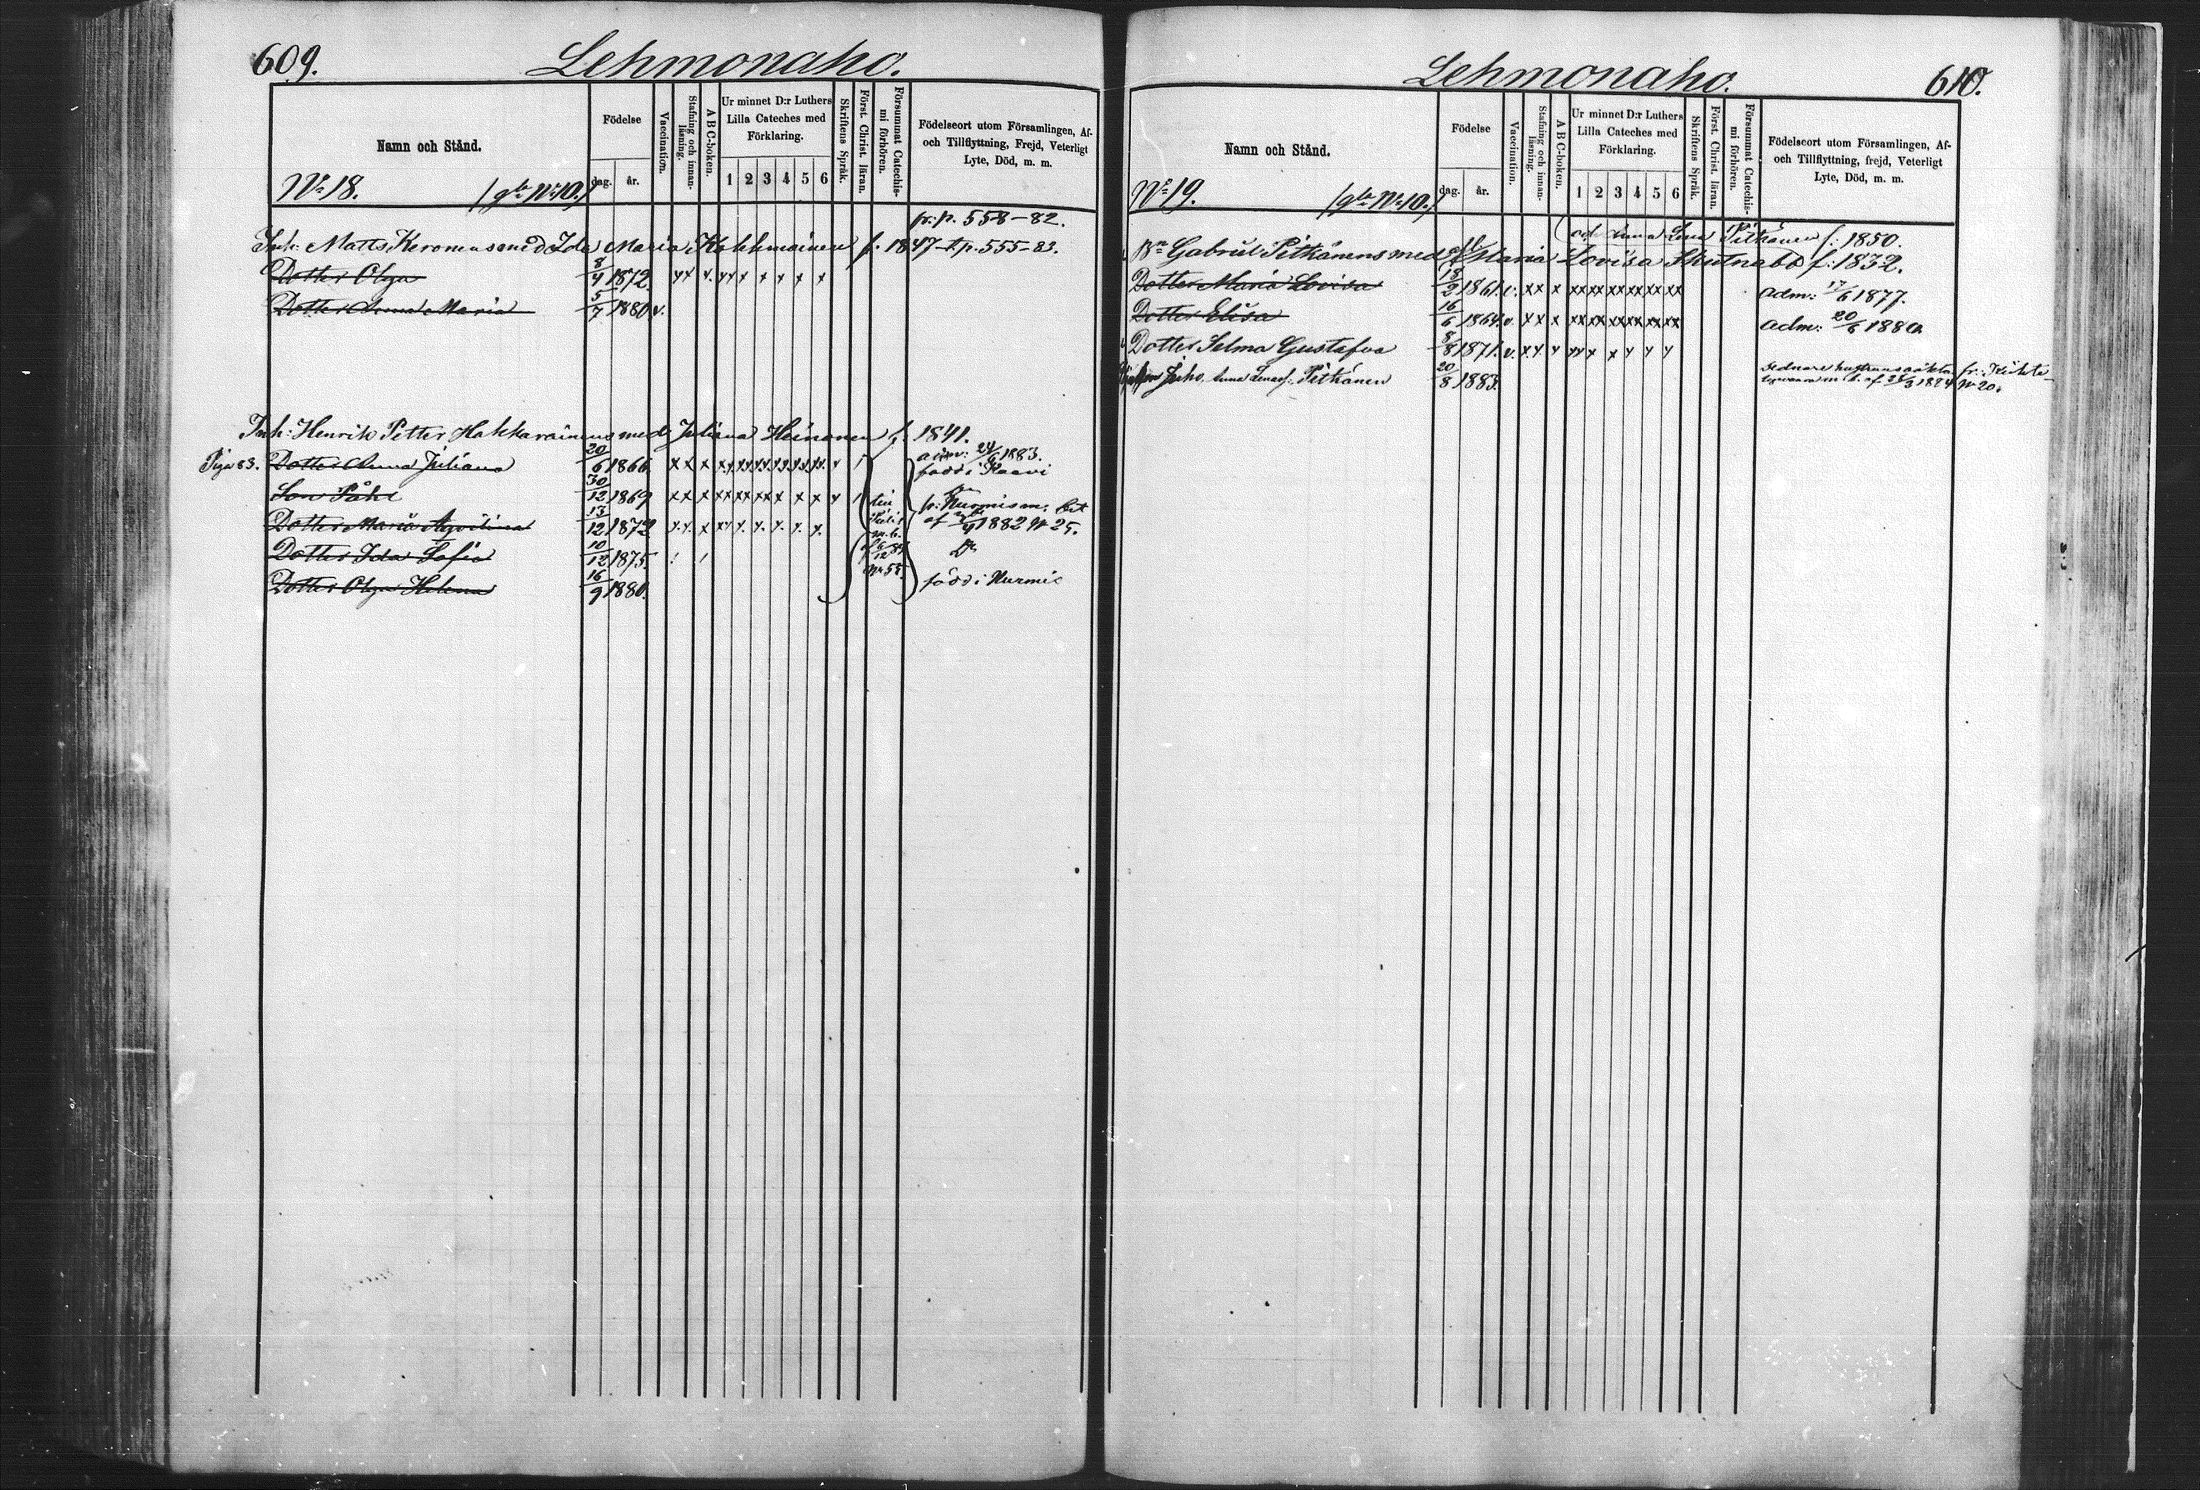 609.
Lehmonaho.
Namn och Stånd.
Födelse
dag.
år.
Vaccination.
Stafning och innanläsning.
A B C-boken.
Ur minnet D:r Luthers
Lilla Cateches med
Förklaring.
1 2 3 4 5 6
Skriftens Språk.
Först. Christ. läran.
Försummat Catechismi förhören.
Födelseort utom Församlingen, Af-
och Tillflyttning, Frejd, Veterligt
Lyte, Död, m. m.
No 18. /gla No 10./
fr. p. 558–82.
Inh: Matts Keronens med Ida Maria Kokkmainen f. 1847 t. p. 555–83.
Dotter Olga 8/4 1872. xx x. xx x x x x x
Dotter Anna Maria 5/7 1880 v.
Inh: Henrik Petter Hakkarainens med Juliana Heinonen f. 1841.
Piga 83. Dotter Anna Juliana 20/6 1866 adm: 24/6 1883.
född i Kaavi
Son Påhl 30/12 1869 fr. Nurmis m. bet
Dotter Maria 13/12 1872 af 1882 No 25.
Dotter Ida Sofia 10/12 1875. Do
No 55.
Dotter Olga Helena 16/9 1880. född i Nurmis
Lehmonaho.
610.
Namn och Stånd.
Födelse
dag.
år.
Vaccination.
Stafning och innanläsning.
A B C-boken.
Ur minnet D:r Luthers
Lilla Cateches med
Förklaring.
1 2 3 4 5 6
Skriftens Språk.
Först. Christ. läran.
Försummat Catechismi förhören.
Födelseort utom Församlingen, Af-
och Tillflyttning, frejd, Veterligt
Lyte, Död, m. m.
No 19. /gla No 10./
och Anna Lena Pitkänen f: 1850.
Bn Gabriel Pitkänens med Maria Lovisa Skutnabb f: 1832.
Dotter Maria Lovisa 18/2 1861. v. xx x xx xx xx xx xx xx adm: 17/6 1877.
Dotter Elisa 16/6 1864. v. xx x xx xx xx xx xx xx adm: 20/6 1880.
Dotter Selma Gustafva 8/8 1871. v. xx x xx x x x x x
Juho, Anna Lenas Pitkänen 20/8 1883.
sednare hustruns oäkta
m. b. af 1884 No 20.